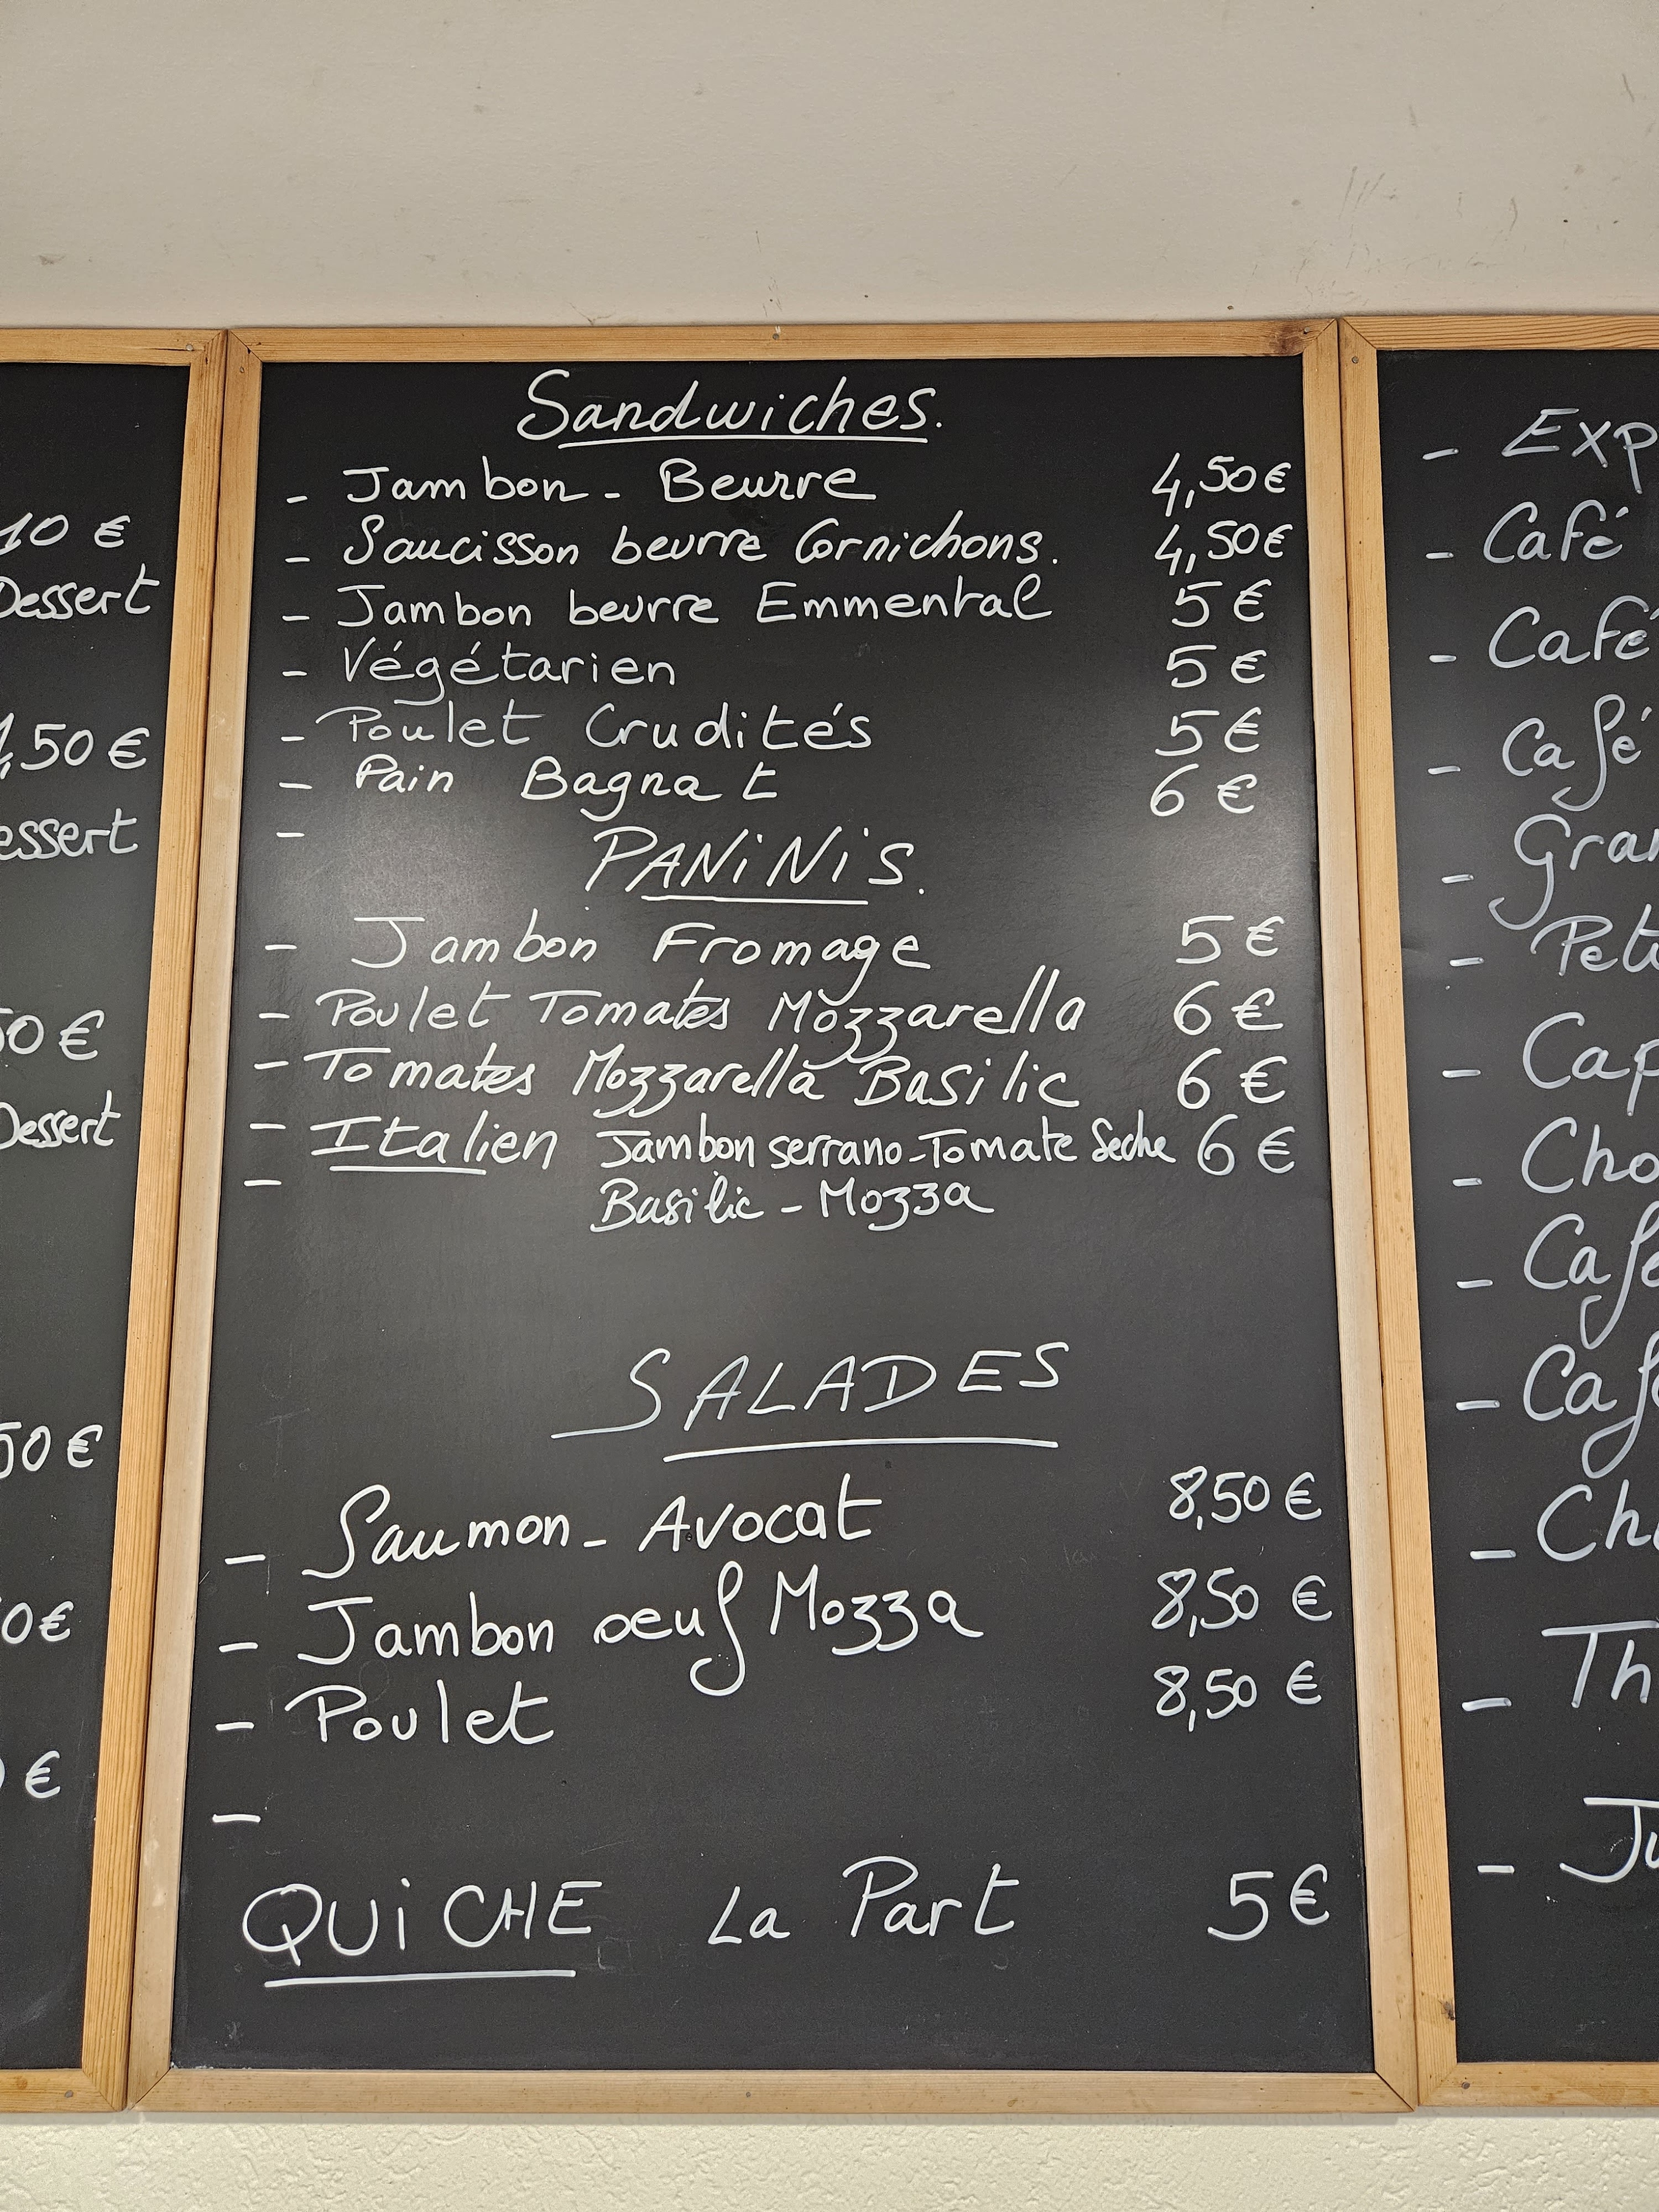 Sandwiches.
- Jambon - Beurre 4,50€
- Saucisson beurre Cornichons. 4,50€
- Jambon beurre Emmental 5€
- Végétarien 5€
- Poulet Crudités 5€
- Pain Bagnat 6€
-
PANiNiS.
- Jambon Fromage 5€
- Poulet Tomates Mozzarella 6€
- Tomates Mozzarella Basilic 6€
- Italien Jambon serrano-Tomate Seche 6€
- Basilic - Mozza
SALADES
- Saumon - Avocat 8,50€
- Jambon oeuf Mozza 8,50€
- Poulet 8,50€
-
QUiCHE La Part 5€
10 €
Dessert
,50 €
essert
50 €
Dessert
50 €
0€
€
- Exp
- Café
- Café
- Café
- Gran
- Peti
- Cap
- Cho
- Café
- Café
- Ch
- Th
- Ju